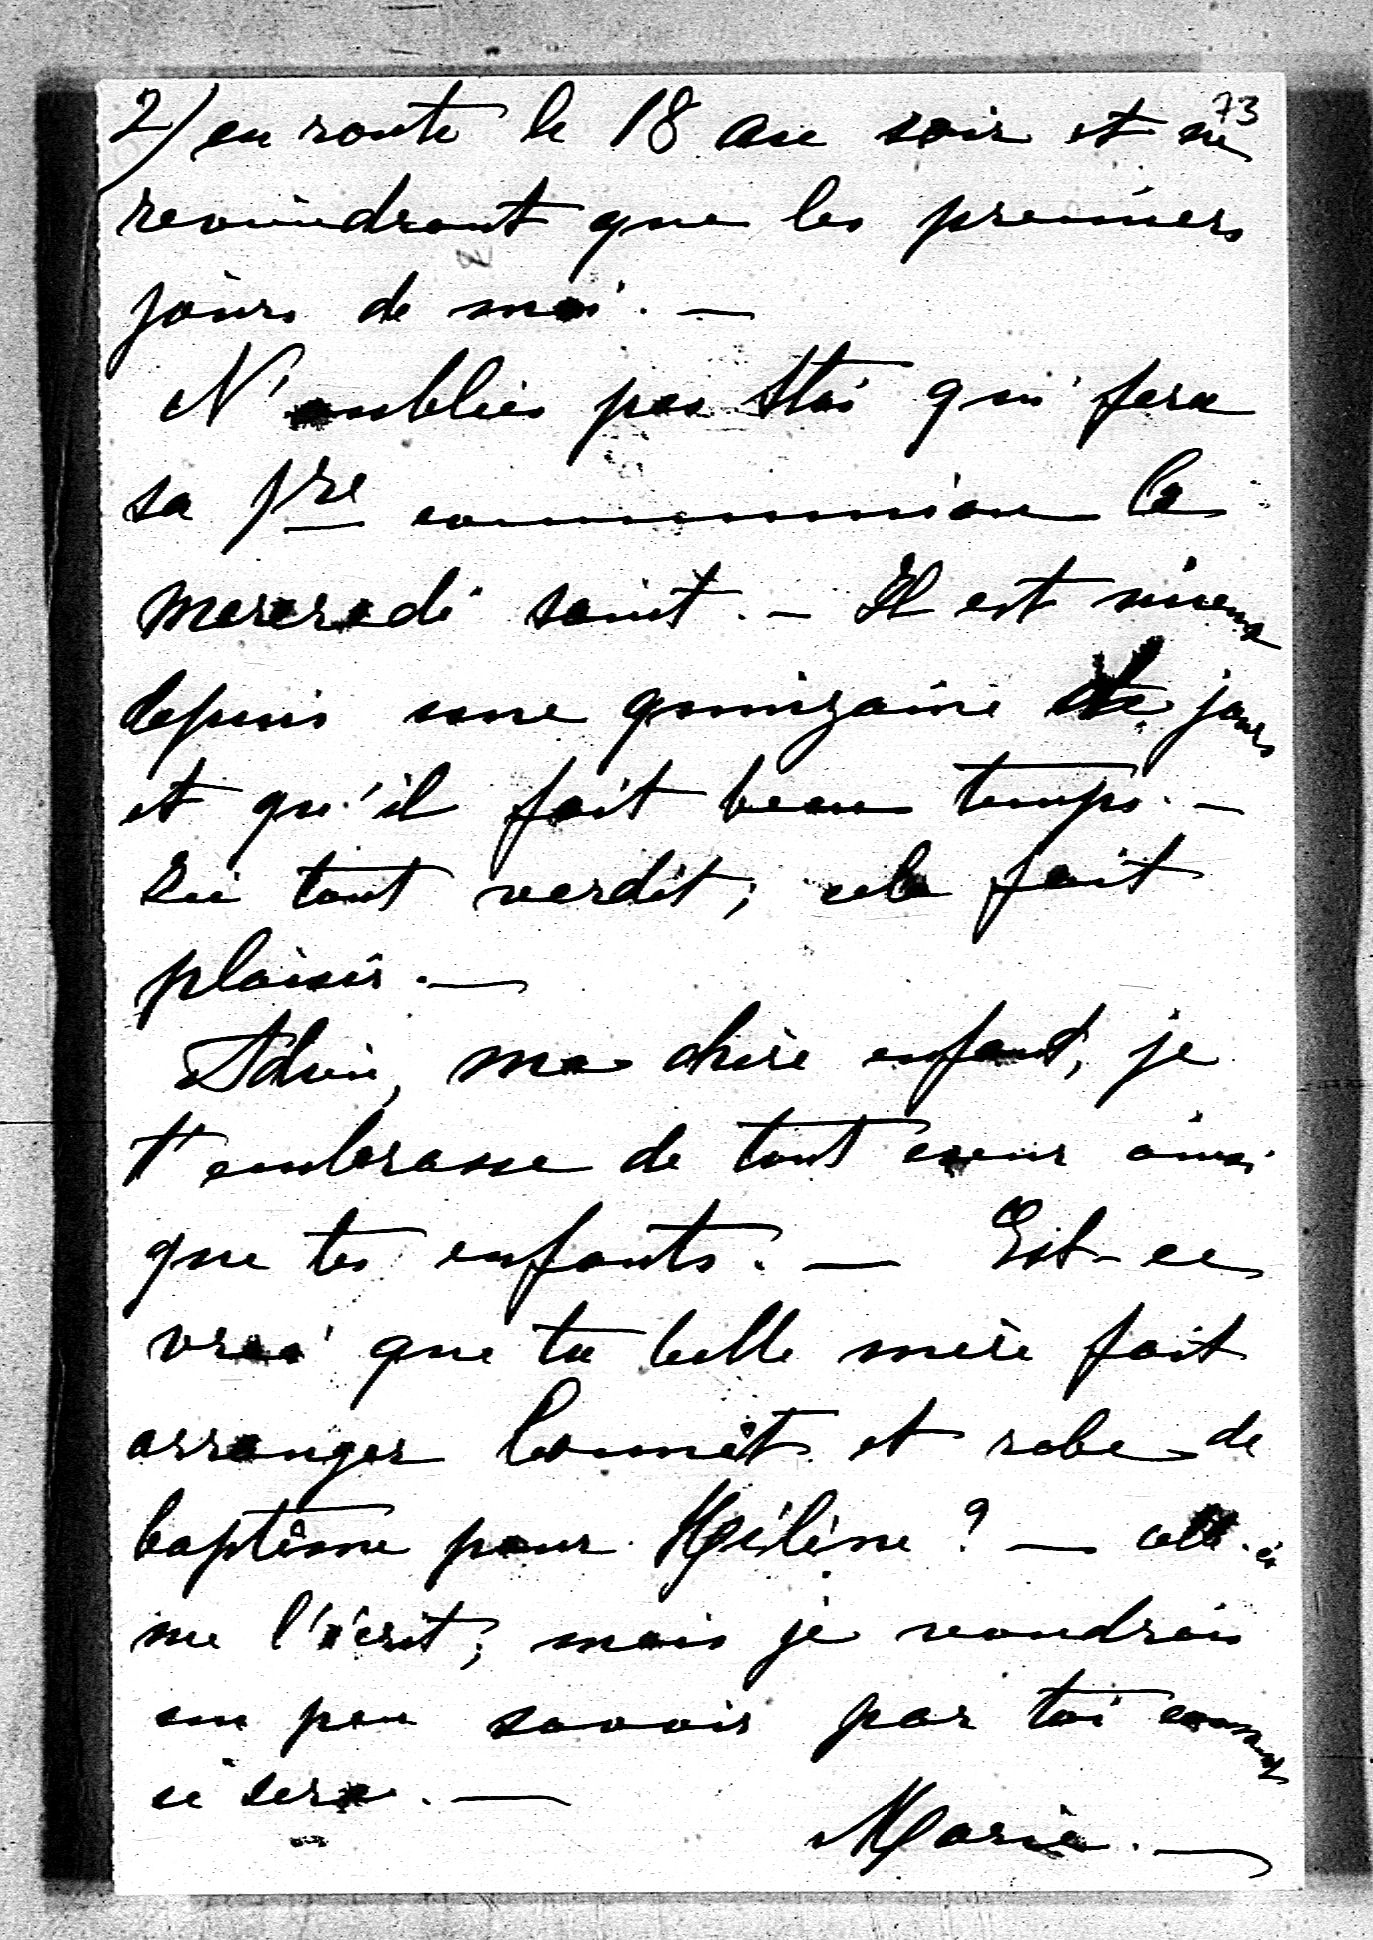 73
2) en route le 18 au soir et ne
reviendront que les premiers
jours de mai. —
N'oublies pas qui fera
sa 1re communion le
mercredi saint. — Il est mieux
depuis une quinzaine de jours
et qu'il fait beau temps. —
Ici tout verdit; cela fait
plaisir. —
Adieu, ma chère enfant, je
t'embrasse de tout coeur ainsi
que tes enfants. — Est-ce
vrai que ta belle mère fait
arranger bonnet et robe de
baptême pour Hélène ? — celle-ci
me l'écrit; mais je voudrais
un peu savoir par toi comment
ce sera. —
Marie. —